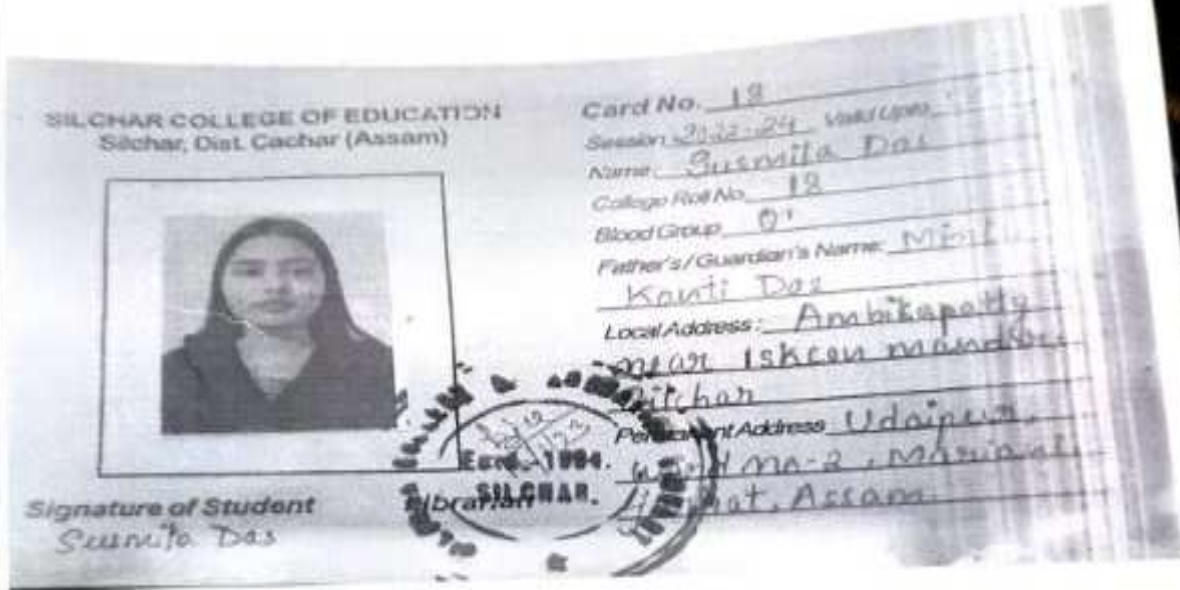 SILCHAR COLLEGE OF EDUCATION
Silchar, Dist. Cachar (Assam)
Signature of Student
Susmita Das
Card No. 18
Session 2022-24 Valid Upto
Name: Susmita Das
College Roll No. 18
Blood Group
Father's/Guardian's Name:
Kanti Das
Local Address: Ambikapatty
near Iskcon mandir
Silchar
Permanent Address Udaipur,
Assam
Librarian
Estd.-1994.
SILCHAR.